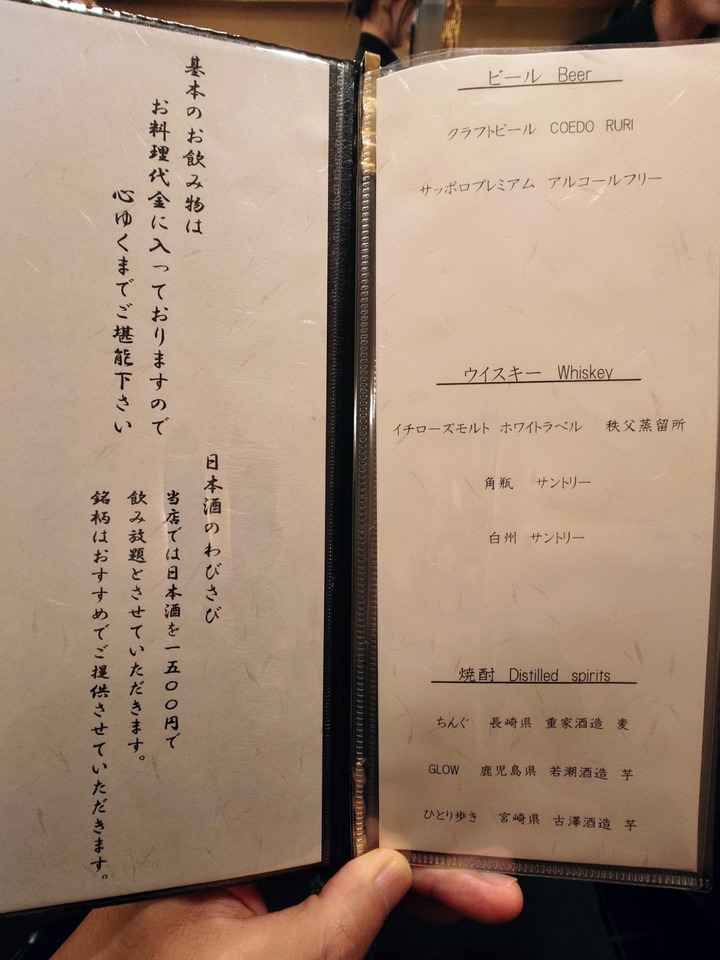 基本のお飲み物は
お料理代金に入っておりますので
心ゆくまでご堪能下さい
日本酒のわびさび
当店では日本酒を一五〇〇円で
飲み放題とさせていただきます。
銘柄はおすすめでご提供させていただきます。
ビール Beer
クラフトビール COEDO RURI
サッポロプレミアム アルコールフリー
ウイスキー Whiskey
イチローズモルト ホワイトラベル 秩父蒸留所
角瓶 サントリー
白州 サントリー
焼酎 Distilled spirits
ちんぐ 長崎県 重家酒造 麦
GLOW 鹿児島県 若潮酒造 芋
ひとり歩き 宮崎県 古澤酒造 芋